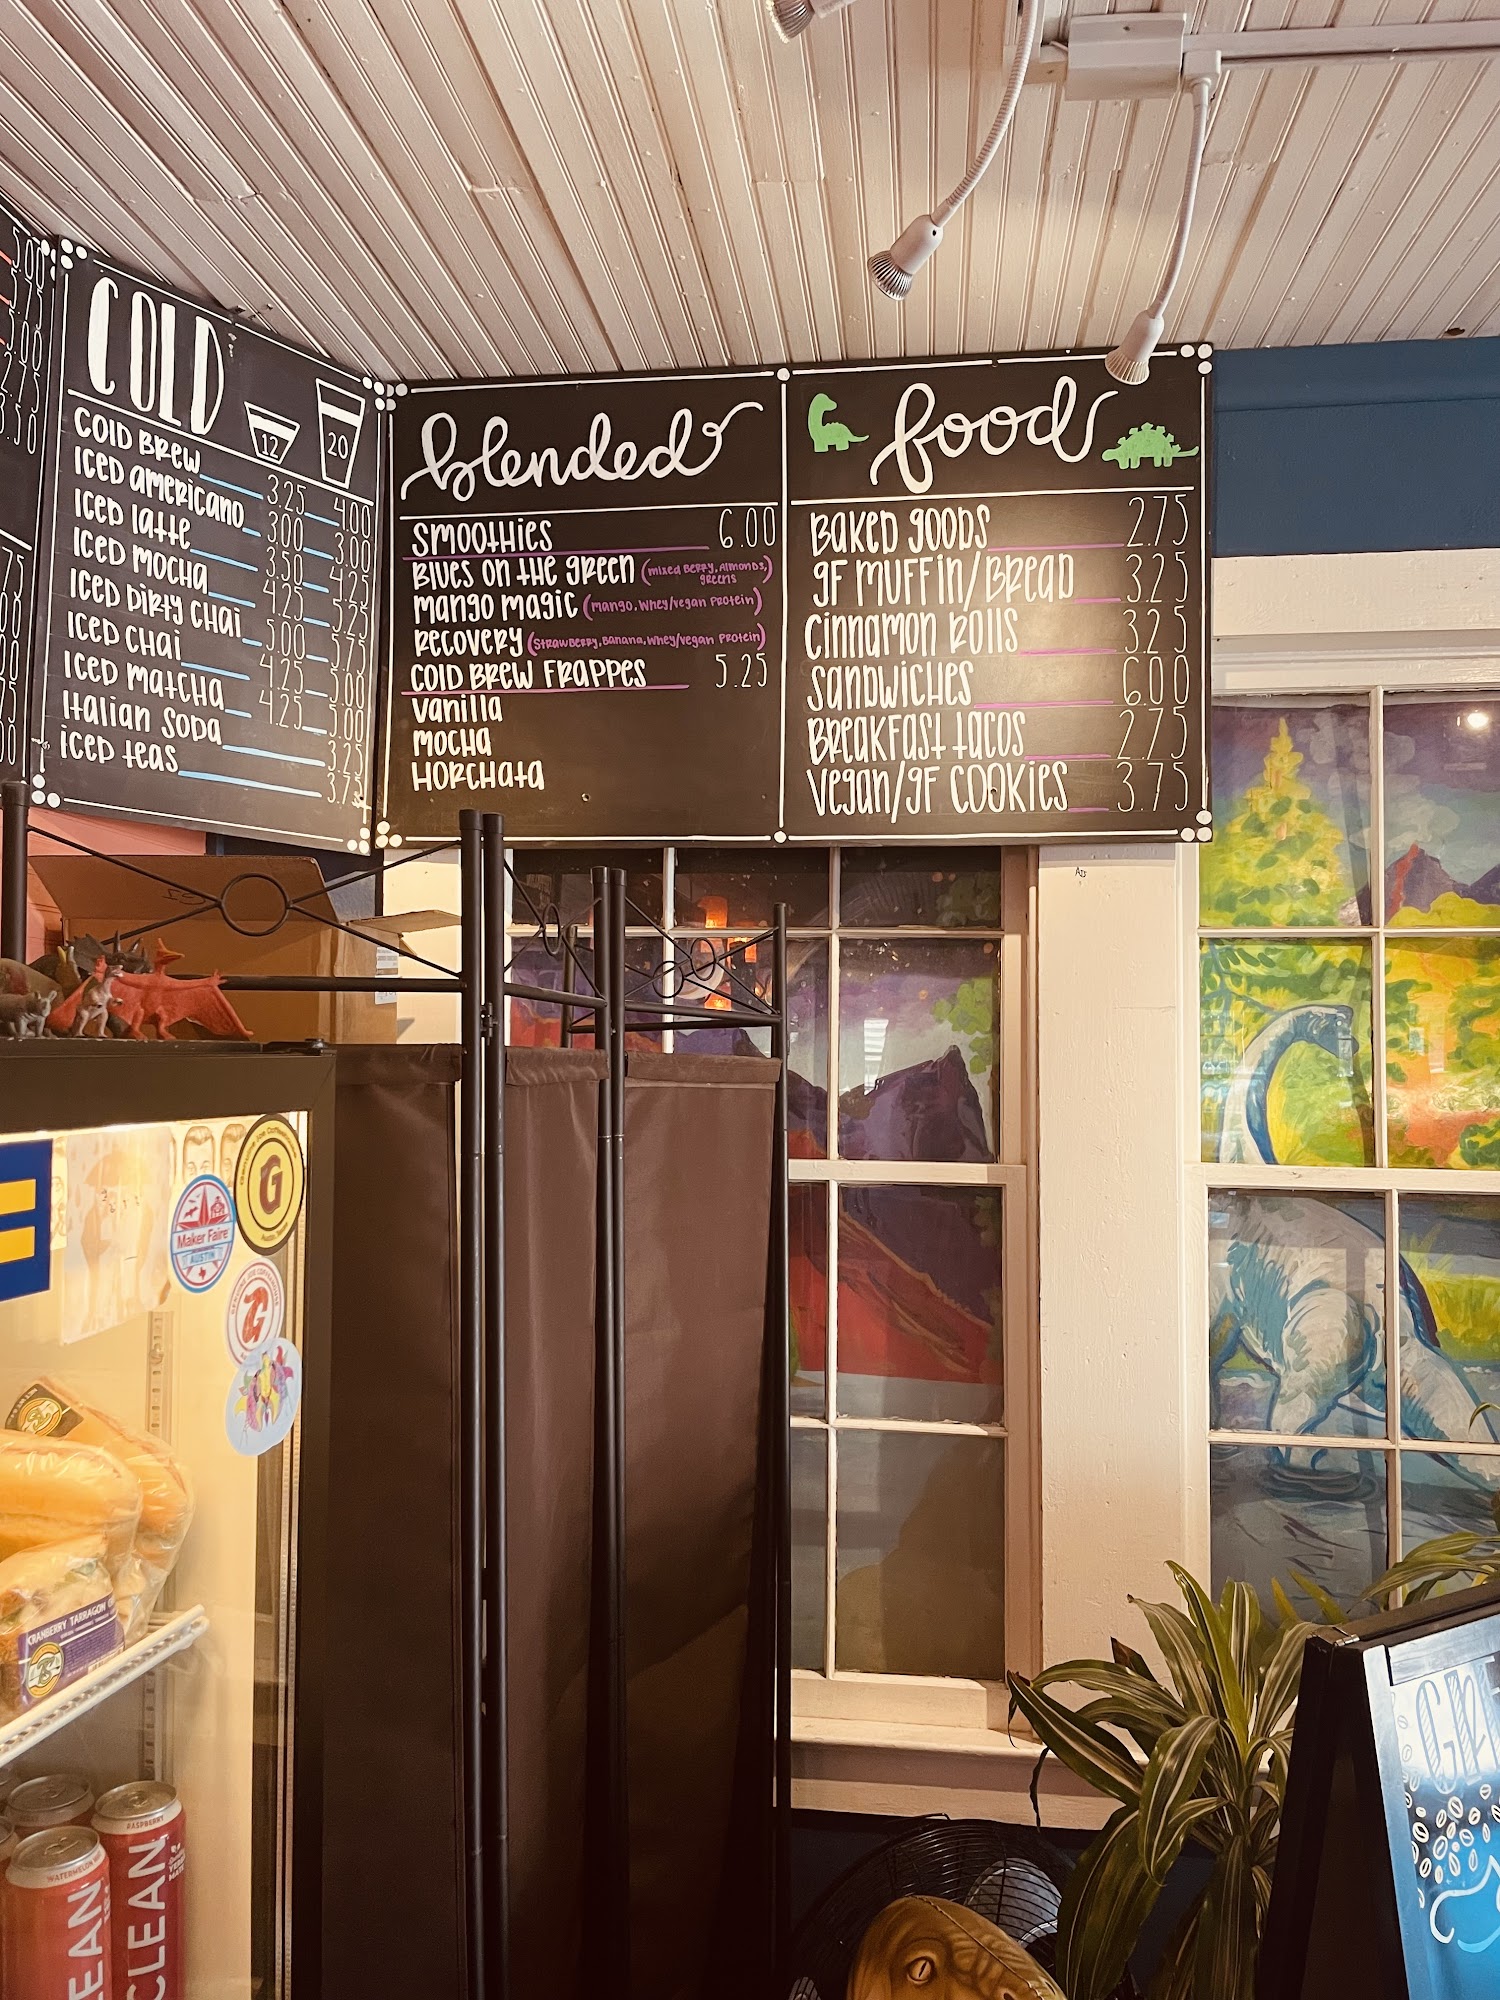 COLD
12 20
COLD BREW 3.25 4.00
ICED AMERICANO 3.00 3.00
ICED LATTE 3.50 4.25
ICED MOCHA 4.25 5.25
ICED DIRTY CHAI 5.00 5.75
ICED CHAI 4.25 5.00
ICED MATCHA 4.25 5.00
ITALIAN SODA 3.25
ICED TEAS 3.75
blended
SMOOTHIES 6.00
BLUES ON THE GREEN (MIXED BERRY, ALMONDS,
GREENS)
MANGO MAGIC (MANGO, WHEY/VEGAN PROTEIN)
RECOVERY (STRAWBERRY, BANANA, WHEY/VEGAN PROTEIN)
COLD BREW FRAPPES 5.25
VANILLA
MOCHA
HORCHATA
food
BAKED GOODS 2.75
GF MUFFIN/BREAD 3.25
CINNAMON ROLLS 3.25
SANDWICHES 6.00
BREAKFAST TACOS 2.75
VEGAN/GF COOKIES 3.75
G
Maker Faire
AUSTIN
G
CRANBERRY TARRAGON
WATERMELON
RASPBERRY
CLEAN